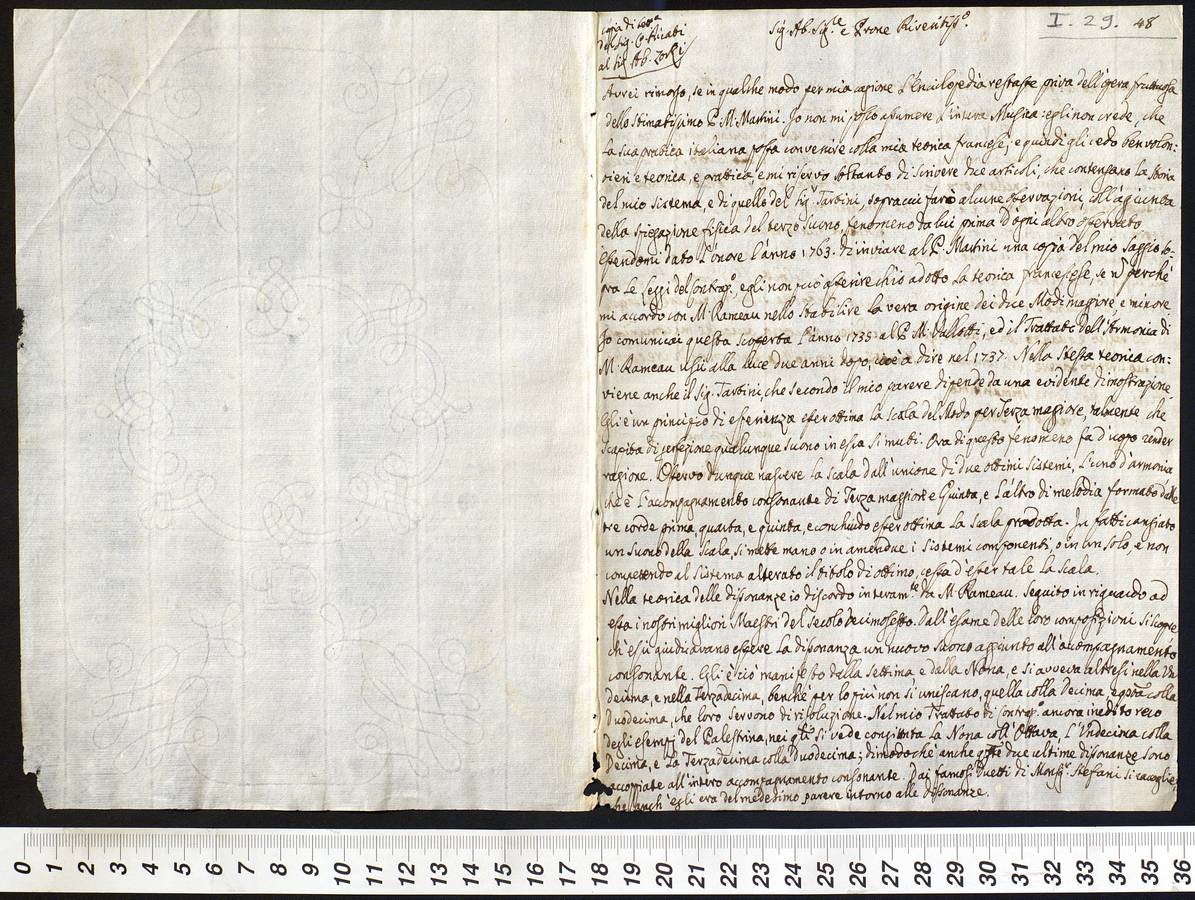 I. 29. 48
Copia di lett.ra
del Sig. C. Riccati
al Sig. Ab. Zorzi
Sig. Ab. Sig.re e Prone Riveritiss.o
Avrei rimorso, se in qualche modo per mia cagione l'Enciclopedia restasse priva dell'opera fruttuosa
dello stimatissimo P. M. Martini. Io non mi posso assumere l'intera Musica: egli non crede, che
la sua pratica italiana possa convenire colla mia teorica francese; e quindi gli cedo ben volon:
tieri e teorica, e prattica, e mi riservo soltanto di scrivere due articoli, che contengano la storia
del mio sistema, e di quello del Sig.r Tartini, sopra cui farò alcune osservazioni, coll'aggiunta
della spiegazione fisica del terzo suono, fenomeno da lui prima d'ogni altro osservato
Essendomi dato l'onore l'anno 1763. di inviare al P. Martini una copia del mio Saggio so-
pra le Leggi del Contrap.o, egli non può asserire ch'io adotto la teorica francese, se n perchè
mi accordo con M. Rameau nello stabilire la vera origine dei due Modi maggiore e minore
Io comunicai questa scoperta l'anno 1735. al P. M. Vallotti, ed il Trattato dell'Armonia di
M. Rameau uscì alla luce due anni dopo, cioè a dire nel 1737. Nella stessa teorica con:
viene anche il Sig. Tartini, che secondo il mio parere dipende da una evidente dimostrazione
Egli è un principio di esperienza esser ottima la scala del Modo per Terza maggiore, talmente che
scapita di perfezione qualunque suono in essa si muti. Ora di questo fenomeno fa d'uopo render
ragione. Osservo dunque nascere la scala dall'unione di due ottimi sistemi, l'uno d'armonia
che è l'accompagnamento consonante di Terza maggiore e Quinta, e l'altro di melodia formato dalle
tre corde prima, quarta, e quinta, e conchiudo esser ottima la scala prodotta. In fatti cangiato
un suono della scala, si mette mano o in amendue i sistemi componenti, o in un solo, e non
competendo al sistema alterato il titolo di ottimo, cessa d'esser tale la scala.
Nella teorica delle dissonanze io discordo interam.te da M. Rameau. Seguito in riguardo ad
essa i nostri migliori Maestri del Secolo decimosesto. Dall'esame delle loro composizioni si scopre
ch'essi giudicavano essere la dissonanza un nuovo suono aggiunto all'accompagnamento
consonante. Egli è ciò manifesto dalla settima e dalla Nona, e si avvera altresì nella Un
decima, e nella Terzadecima, benchè per lo più non si uniscano, quella colla Decima, e questa colla
Duodecima, che loro servono di risoluzione. Nel mio Trattato di Contrap.o ancora inedito reco
degli esempj del Palestrina, nei q.li si vede congiunta la Nona coll'Ottava, l'Undecima colla
Decima, e la Terzadecima colla Duodecima; dimodochè anche queste due ultime dissonanze sono
accoppiate all'intero accompagnamento consonante. Dai famosi Duetti di Mons.r Stefani si raccoglie
che anch'egli era del medesimo parere intorno alle dissonanze.
0 1 2 3 4 5 6 7 8 9 10 11 12 13 14 15 16 17 18 19 20 21 22 23 24 25 26 27 28 29 30 31 32 33 34 35 36